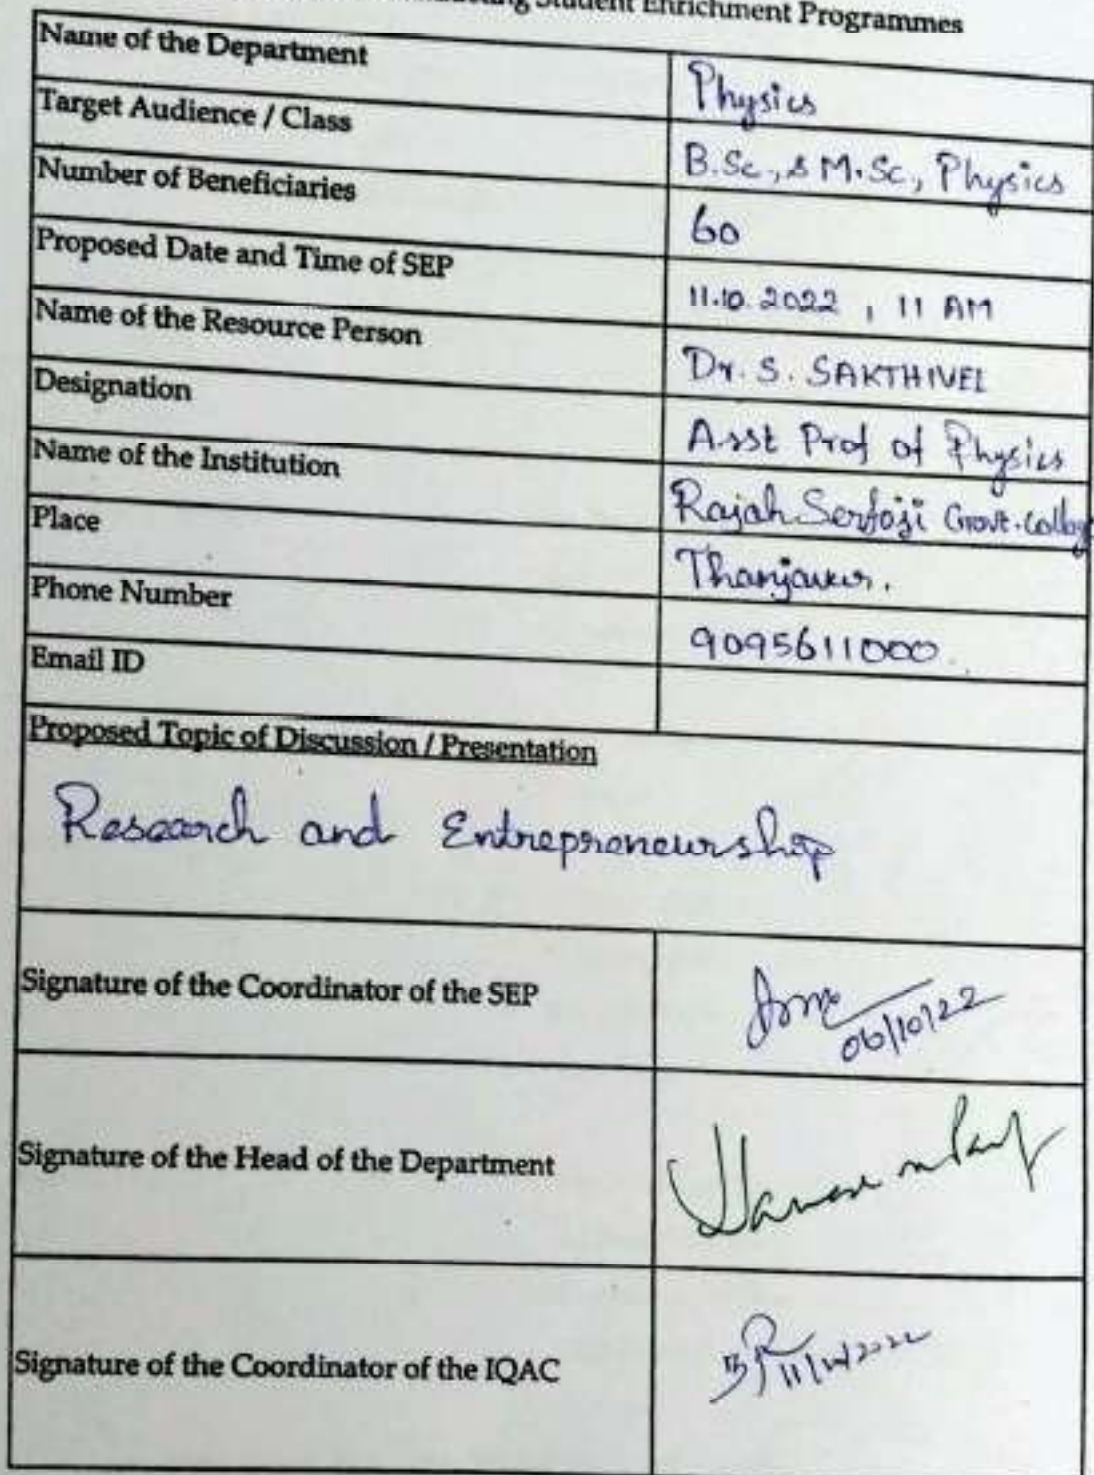 Student Enrichment Programmes
Name of the Department
Physics
Target Audience / Class
B.Sc., & M.Sc., Physics
Number of Beneficiaries
60
Proposed Date and Time of SEP
11.10.2022, 11 AM
Name of the Resource Person
Dr. S. SAKTHIVEL
Designation
Asst Prof of Physics
Name of the Institution
Rajah Serfoji Govt. College
Place
Thanjavur.
Phone Number
9095611000
Email ID
Proposed Topic of Discussion / Presentation
Research and Entrepreneurship
Signature of the Coordinator of the SEP
06/10/22
Signature of the Head of the Department
Signature of the Coordinator of the IQAC